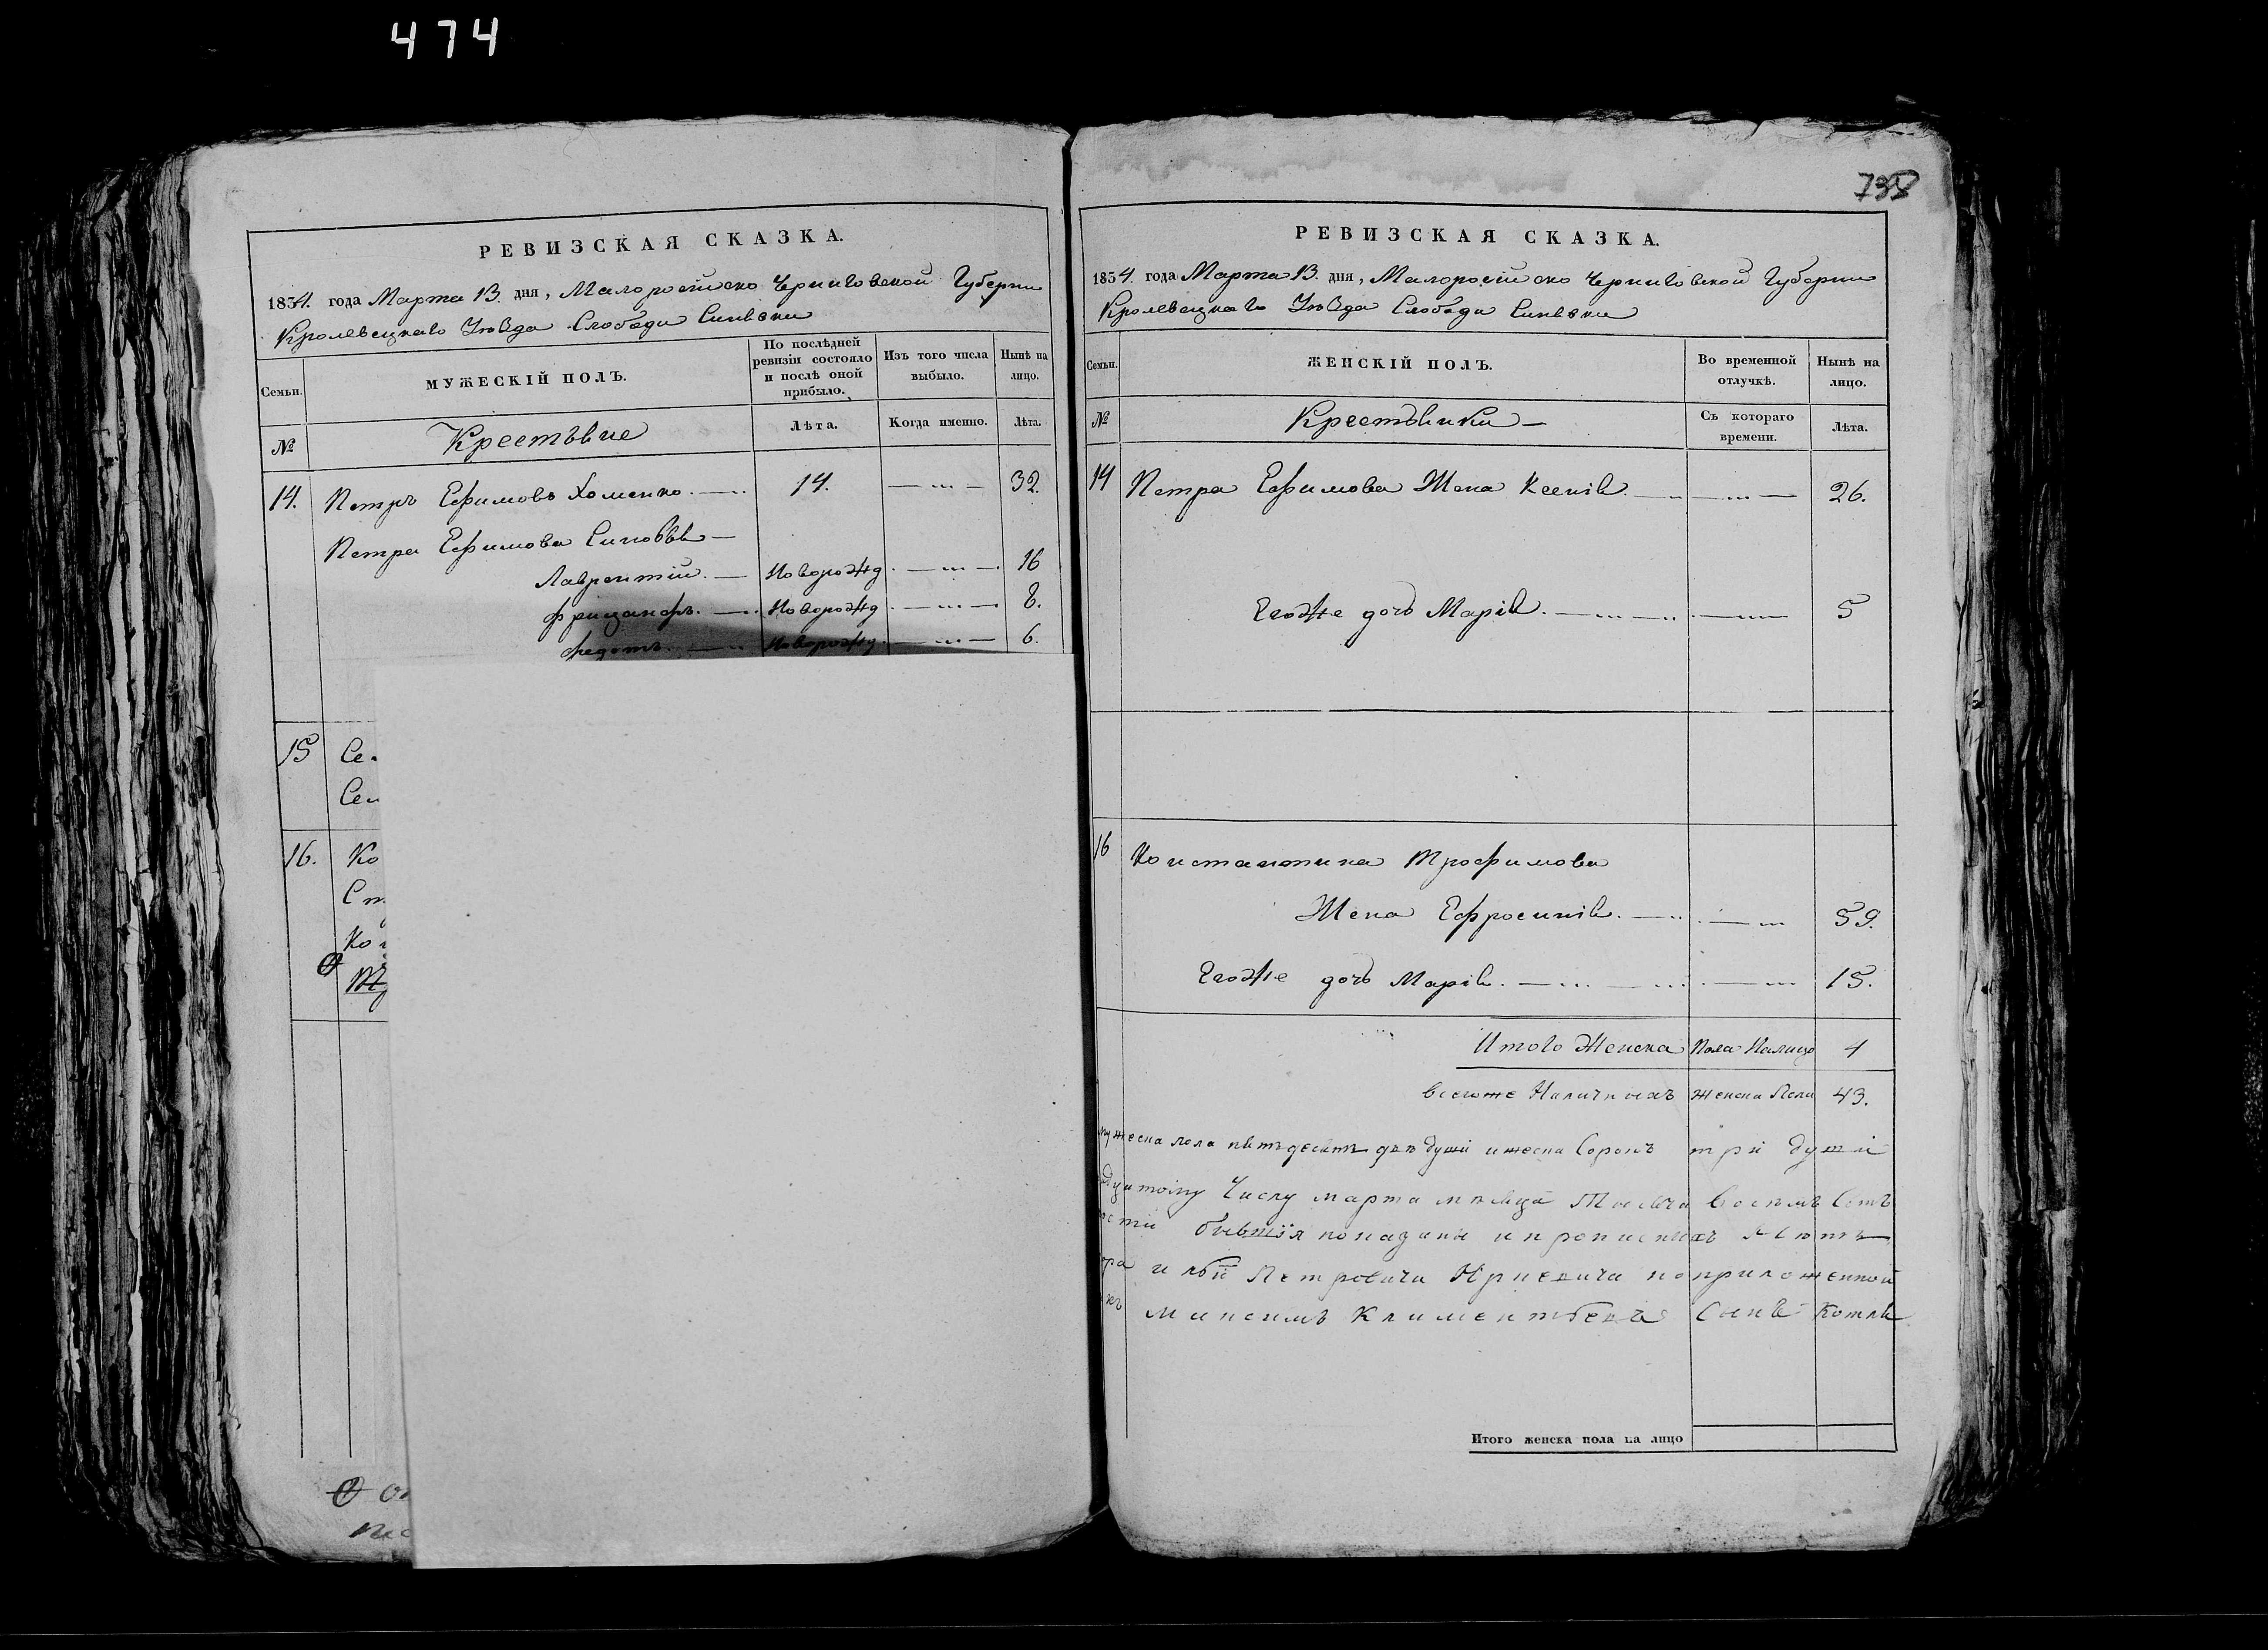 474
738
РЕВИЗСКАЯ СКАЗКА.
1834. года Марта 13. дня, Малоросійско Черниговской Губерни
Кролевецкаго Уѣзда Слободи Синявки
Семьи.
МУЖЕСКІЙ ПОЛЪ.
По послѣдней ревизіи состояло и послѣ оной прибыло.
Изъ того числа выбыло.
Нынѣ на лицо.
№
Крестьяне
Лѣта.
Когда именно.
Лѣта.
14. Петръ Ефимовъ Хоменко. 14. 32.
Петра Ефимова Синовья
Лаврентій. Новорожд 16
Новорожд 8.
Федотъ. Новорожд. 6.
15 Се
Сем
16. Ко
Ст
Ко
РЕВИЗСКАЯ СКАЗКА.
1834. года Марта 13. дня, Малоросійско Черниговской Губерни
Кролевецкаго Уѣзда Слободи Синявки
Семьи.
ЖЕНСКІЙ ПОЛЪ.
Во временной отлучкѣ.
Нынѣ на лицо.
№
Крестьянки
Съ котораго времени.
Лѣта.
14 Петра Ефимова Жена Ксенія. 26.
Егоже дочь Марія. 5
16 Константина Трофимова
Жена Ефросинія. 59.
Егоже дочь Марія. 15.
Итого Женска Пола Налицо 4
всегоже Наличныхъ женска Пола 43.
мужеска пола пятьдесятъ двѣ души и женска Сорокъ три души
Числу марта мѣсяца Тисяча Восемъ Сотъ
бывшія показаны и прописныхъ нетъ
Петровича приложенной
Климентьевъ Сынъ
Итого женска пола на лицо